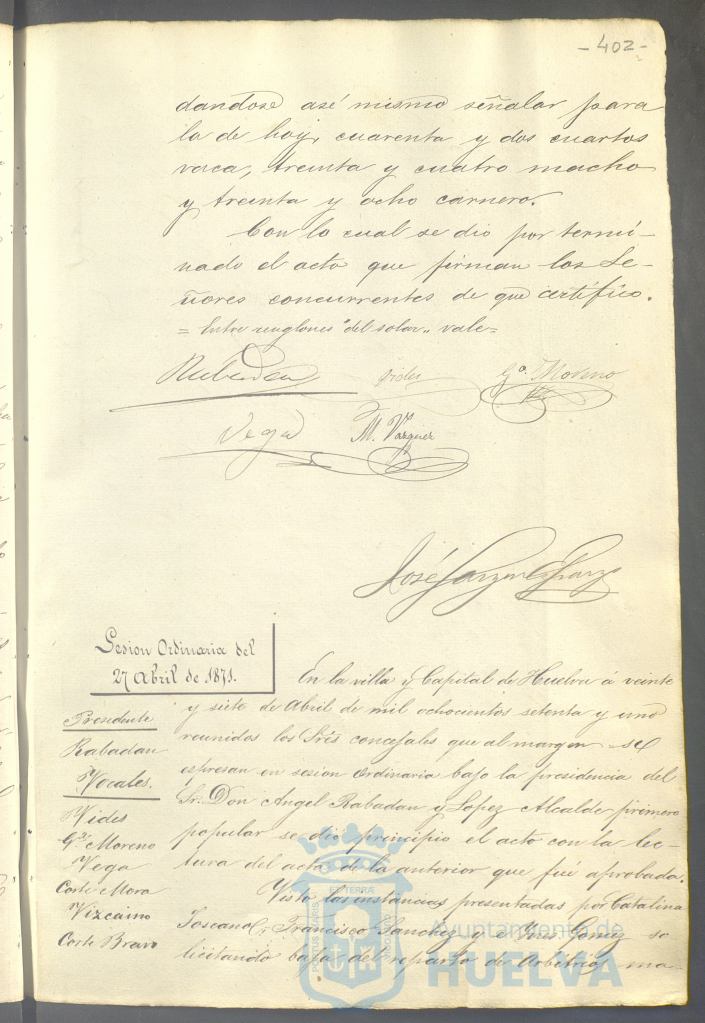 - 402 -
dandose asé mismo señalar para
la de hoy, cuarenta y dos cuartos
vaca, treinta y cuatro macho
y treinta y ocho carnero.
Con lo cual se dio por termi-
nado el acto que firman los Se-
ñores concurrentes de que certifico.
= Entre renglones "del solar" vale=
Vides Gª. Moreno
Vega M. Vazquez
José
Sesion Ordinaria del
27 Abril de 1871.
Presidente
Rabadan
Vocales.
Vides
Gª. Moreno
Vega
Corte Mora
Vizcaino
Corte Bravo
En la villa y Capital de Huelva á veinte
y siete de Abril de mil ochocientos setenta y uno
reunidos los Srês concejales que al margen se
espresan en sesion ordinaria bajo la presidencia del
Sr. Don Angel Rabadan y Lopez Alcalde primero
popular se dió principio el acto con la lec-
tura del acta de la anterior que fué aprobada.
Vista las instancias presentadas por Catalina
Toscano, Francisco Sanchez y Gomez so
licitando baja del reparto de Arbitrios ma-
Ayuntamiento de
HUELVA